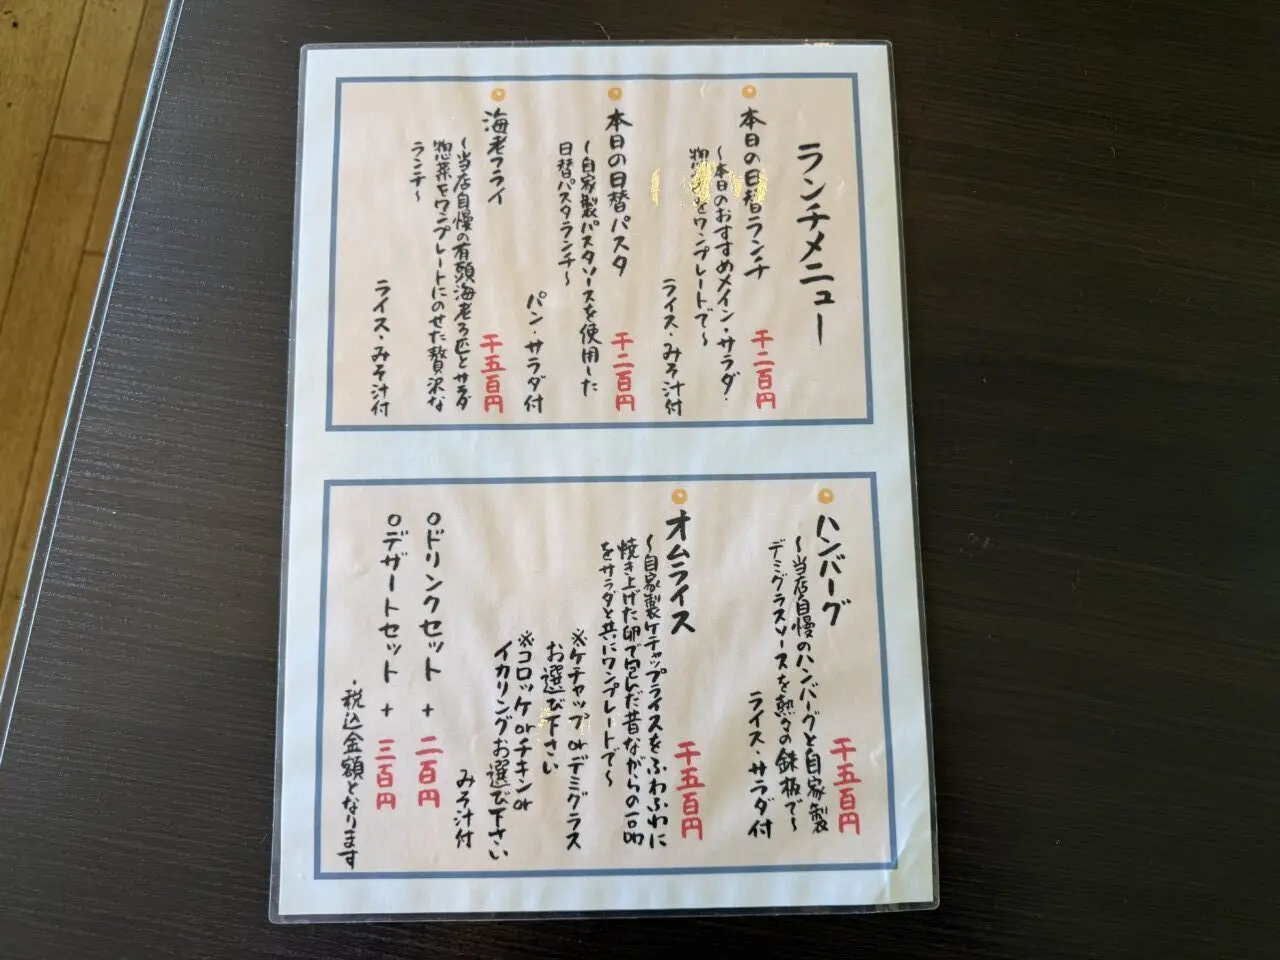 ランチメニュー
本日の日替ランチ
千二百円
〜本日のおすすめメイン・サラダ・
惣菜をワンプレートで〜
ライス・みそ汁付
本日の日替パスタ
千二百円
〜自家製パスタソースを使用した
日替パスタランチ〜
パン・サラダ付
海老フライ
千五百円
〜当店自慢の有頭海老3匹とサラダ
惣菜をワンプレートにのせた贅沢な
ランチ〜
ライス・みそ汁付
ハンバーグ
千五百円
〜当店自慢のハンバーグと自家製
デミグラスソースを熱々の鉄板で〜
ライス・サラダ付
オムライス
千五百円
〜自家製ケチャップライスをふわふわに
焼き上げた卵で包んだ昔ながらの一品
をサラダと共にワンプレートで〜
※ケチャップorデミグラス
お選び下さい
※コロッケorチキンor
イカリングお選び下さい
みそ汁付
○ドリンクセット + 二百円
○デザートセット + 三百円
・税込金額となります